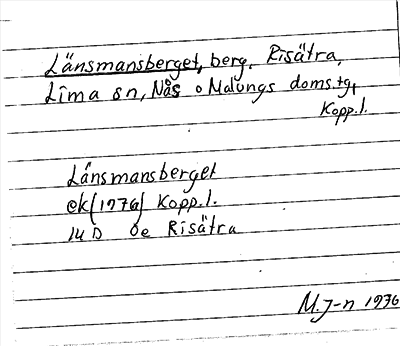 Länsmansberget, berg. Risätra,
Lima sn, Nås o Malungs doms.tg,
Kopp.l.
Länsmansberget
ek (1976) Kopp.l.
14 D 0e Risätra
M.J-n 1976